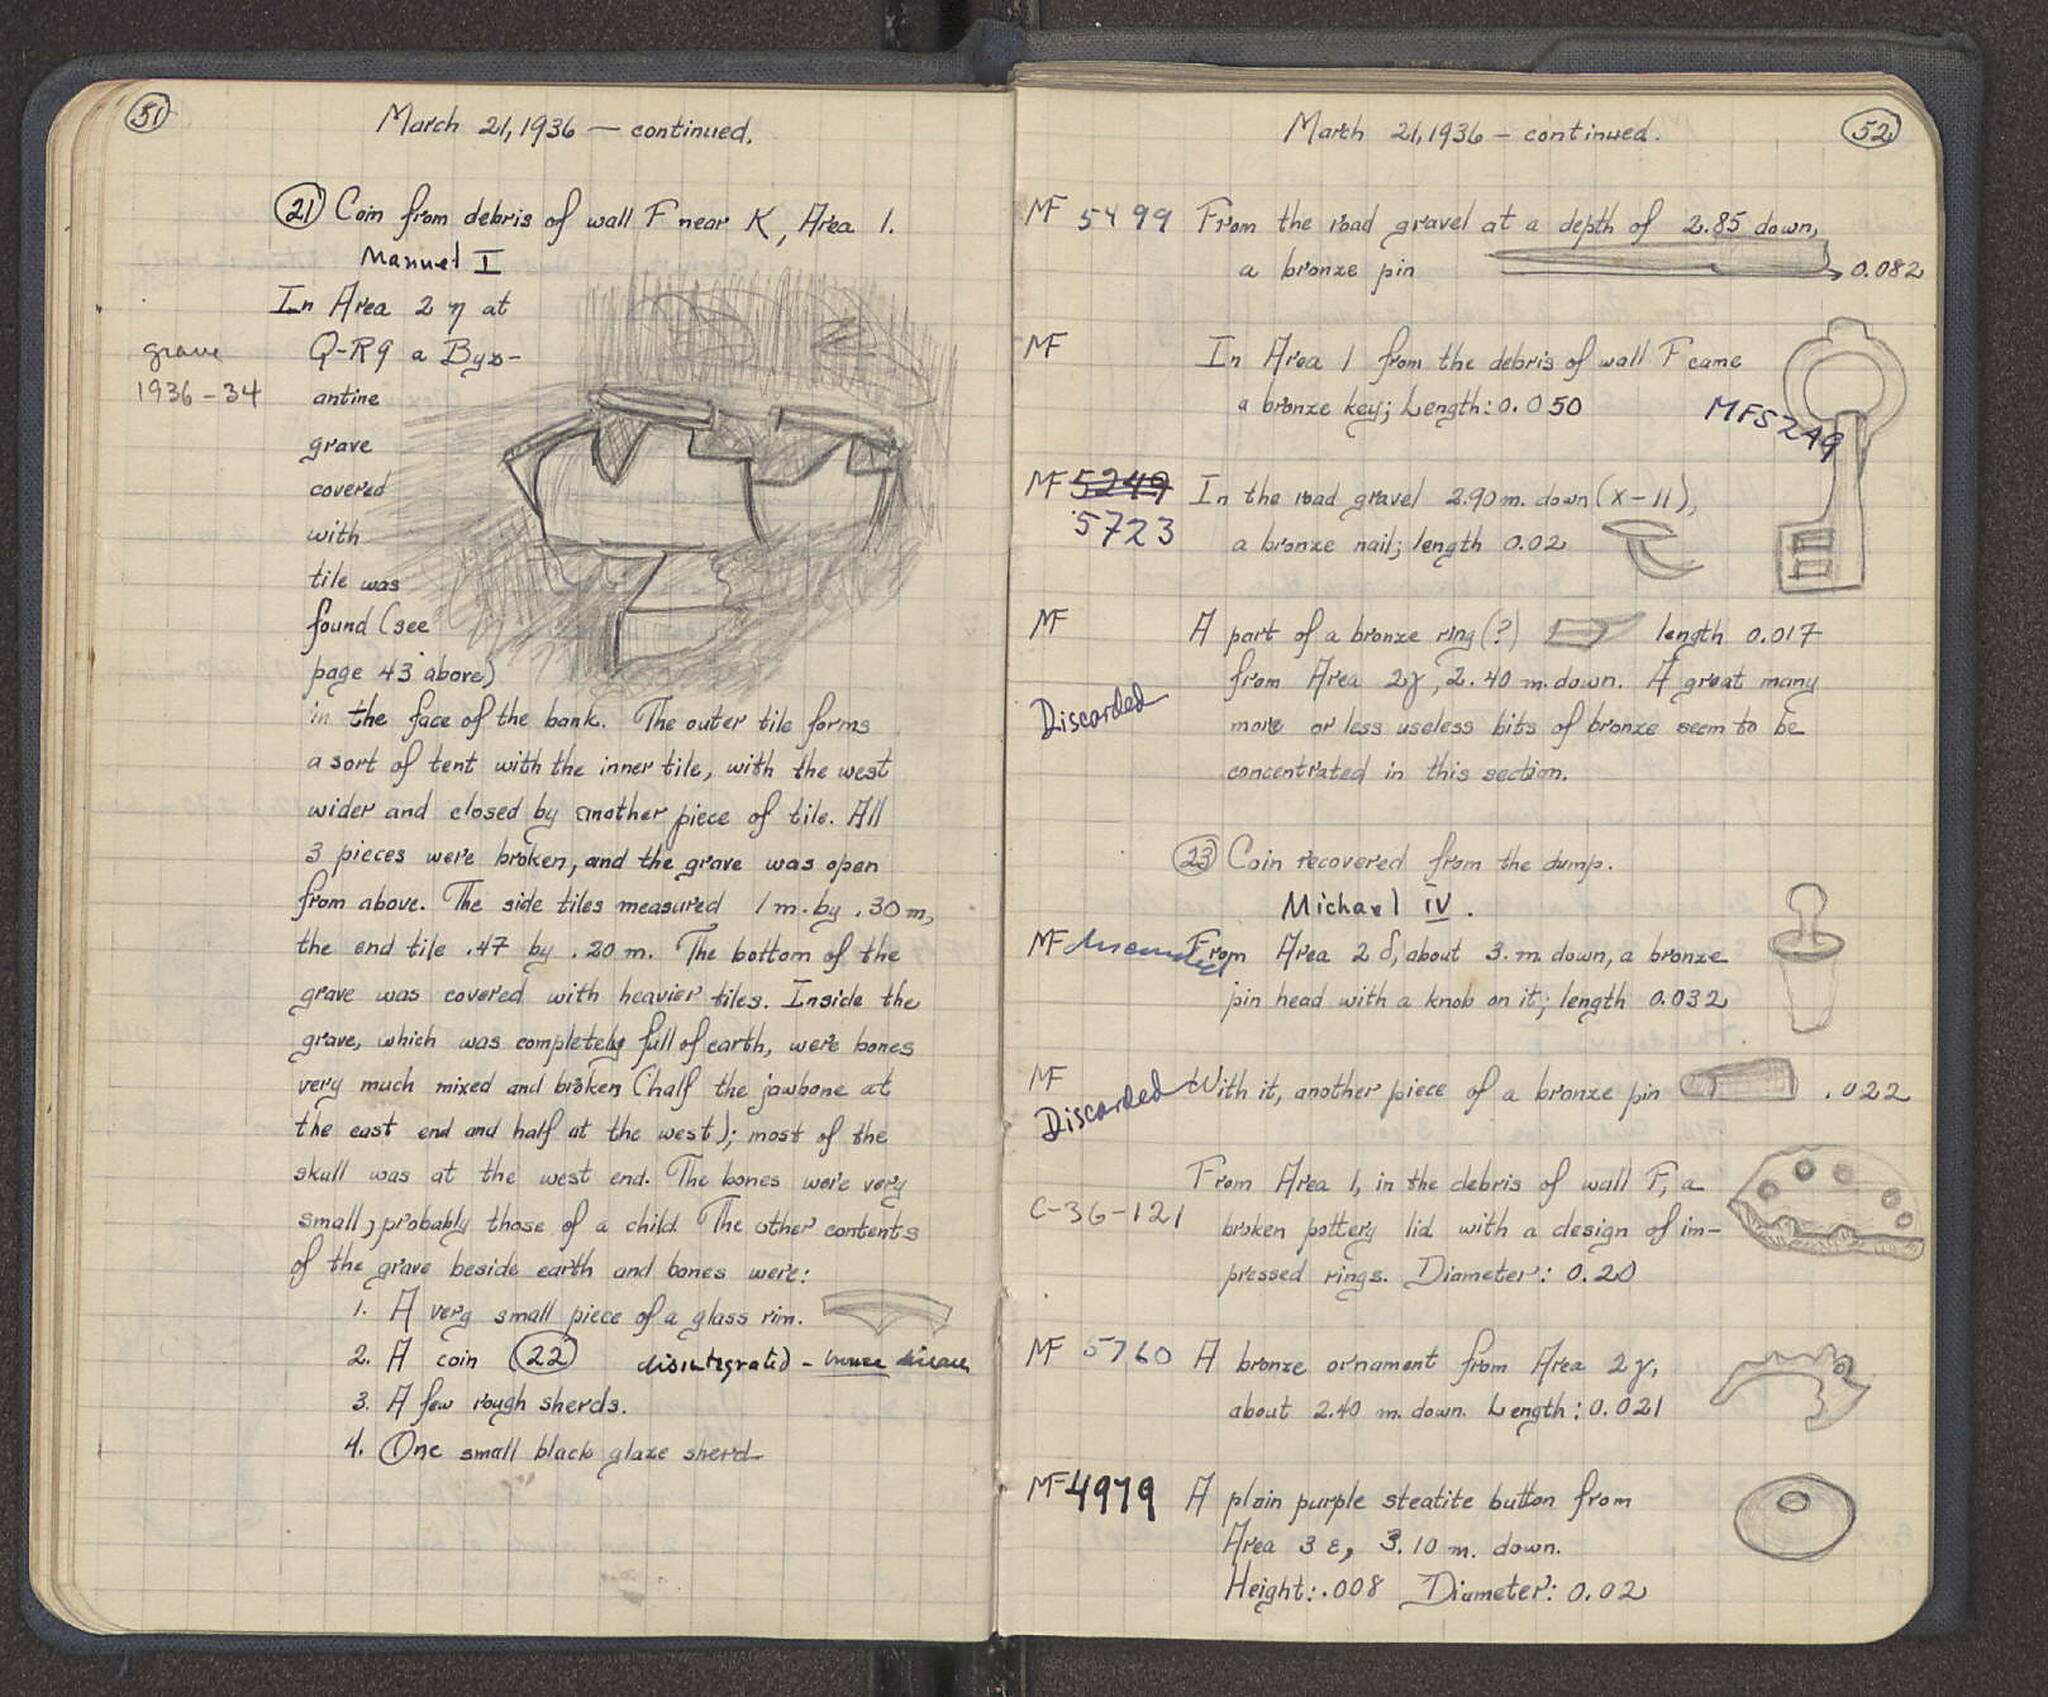 51
March 21, 1936 — continued.
21 Coin from debris of wall F near K, Area 1.
Manuel I
In Area 2 η at
grave
1936-34
Q-R9 a Byz-
antine
grave
covered
with
tile was
found (see
page 43 above)
in the face of the bank. The outer tile forms
a sort of tent with the inner tile, with the west
wider and closed by another piece of tile. All
3 pieces were broken, and the grave was open
from above. The side tiles measured 1 m. by .30 m,
the end tile .47 by .20 m. The bottom of the
grave was covered with heavier tiles. Inside the
grave, which was completely full of earth, were bones
very much mixed and broken (half the jawbone at
the east end and half at the west); most of the
skull was at the west end. The bones were very
small, probably those of a child. The other contents
of the grave beside earth and bones were:
1. A very small piece of a glass rim.
2. A coin 22 disintegrated - bronze disease
3. A few rough sherds.
4. One small black glaze sherd
March 21, 1936 — continued.
52
MF 5499 From the road gravel at a depth of 2.85 down,
a bronze pin 0.082
MF In Area 1 from the debris of wall F came
a bronze key; Length: 0.050 MF5249
MF 5249 In the road gravel 2.90 m. down (X-11),
5723 a bronze nail; length 0.02
MF A part of a bronze ring (?) length 0.017
from Area 2γ, 2.40 m. down. A great many
Discarded more or less useless bits of bronze seem to be
concentrated in this section.
23 Coin recovered from the dump.
Michael IV.
MF Discarded From Area 2 δ, about 3. m. down, a bronze
pin head with a knob on it; length 0.032
MF With it, another piece of a bronze pin .022
Discarded
From Area 1, in the debris of wall F, a
C-36-121 broken pottery lid with a design of im-
pressed rings. Diameter: 0.20
MF 5760 A bronze ornament from Area 2γ,
about 2.40 m. down. Length: 0.021
MF 4979 A plain purple steatite button from
Area 3 ε, 3.10 m. down.
Height: .008 Diameter: 0.02